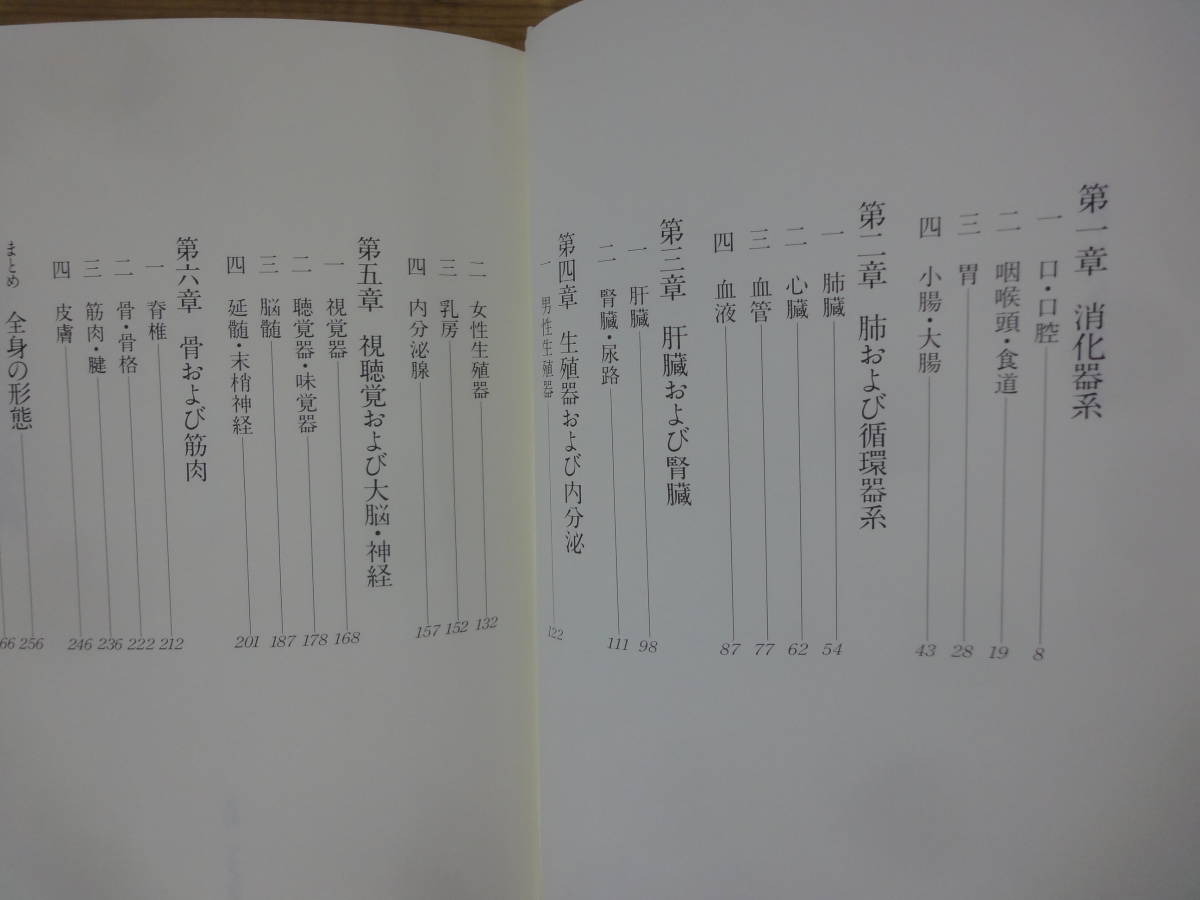 第一章 消化器系
一 口・口腔 8
二 咽喉頭・食道 19
三 胃 28
四 小腸・大腸 43
第二章 肺および循環器系
一 肺臓 54
二 心臓 62
三 血管 77
四 血液 87
第三章 肝臓および腎臓
一 肝臓 98
二 腎臓・尿路 111
第四章 生殖器および内分泌
一 男性生殖器 122
二 女性生殖器 132
三 乳房 152
四 内分泌腺 157
第五章 視聴覚および大脳・神経
一 視覚器 168
二 聴覚器・味覚器 178
三 脳髄 187
四 延髄・末梢神経 201
第六章 骨および筋肉
一 脊椎 212
二 骨・骨格 222
三 筋肉・腱 236
四 皮膚 246
まとめ 全身の形態 256
66